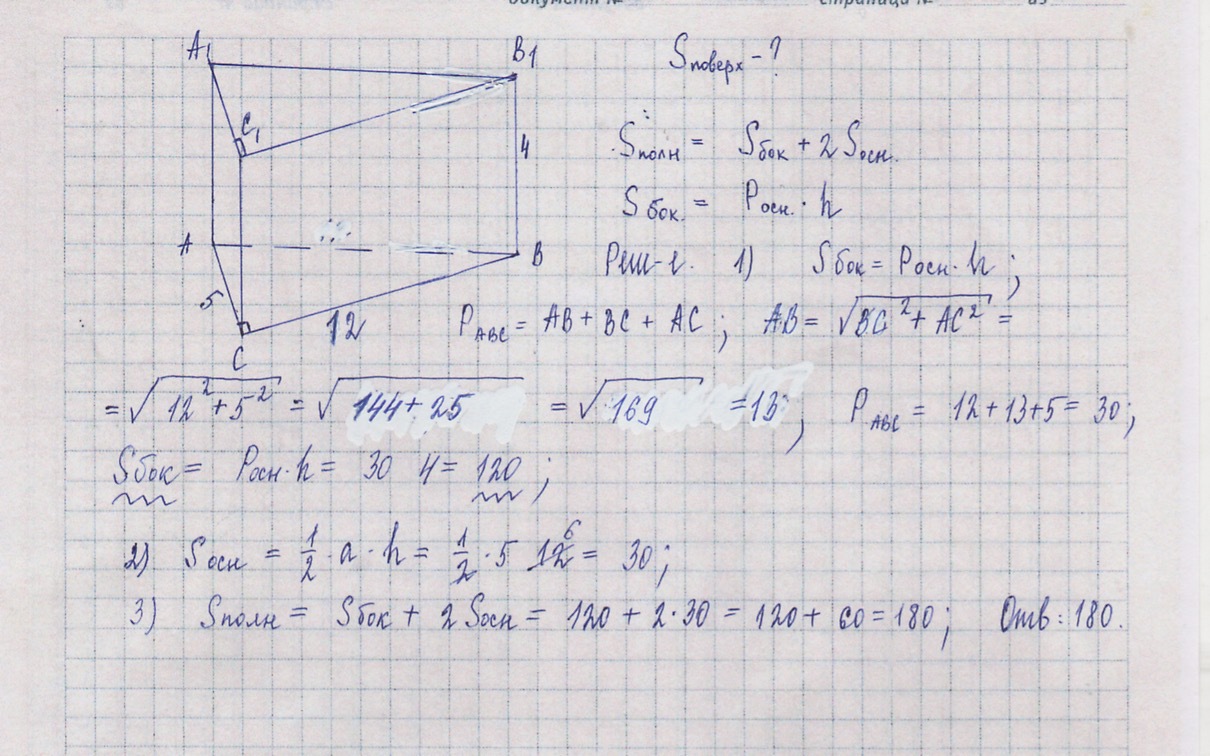 документ №
страница №
A1
B1
Sповерх - ?
C1
4
Sполн = Sбок + 2 Sосн.
Sбок. = Pосн. · h
A
B
Реш-е. 1) Sбок = Pосн · h ;
5
12
P ABC = AB + BC + AC ; AB = √BC² + AC² =
C
= √12² + 5² = √144 + 25 = √169 = 13 ; P ABC = 12 + 13 + 5 = 30 ;
Sбок = Pосн · h = 30 4 = 120 ;
2) Sосн = 1/2 · a · h = 1/2 · 5 12 6 = 30 ;
3) Sполн = Sбок + 2 Sосн = 120 + 2 · 30 = 120 + 60 = 180 ; Отв : 180.